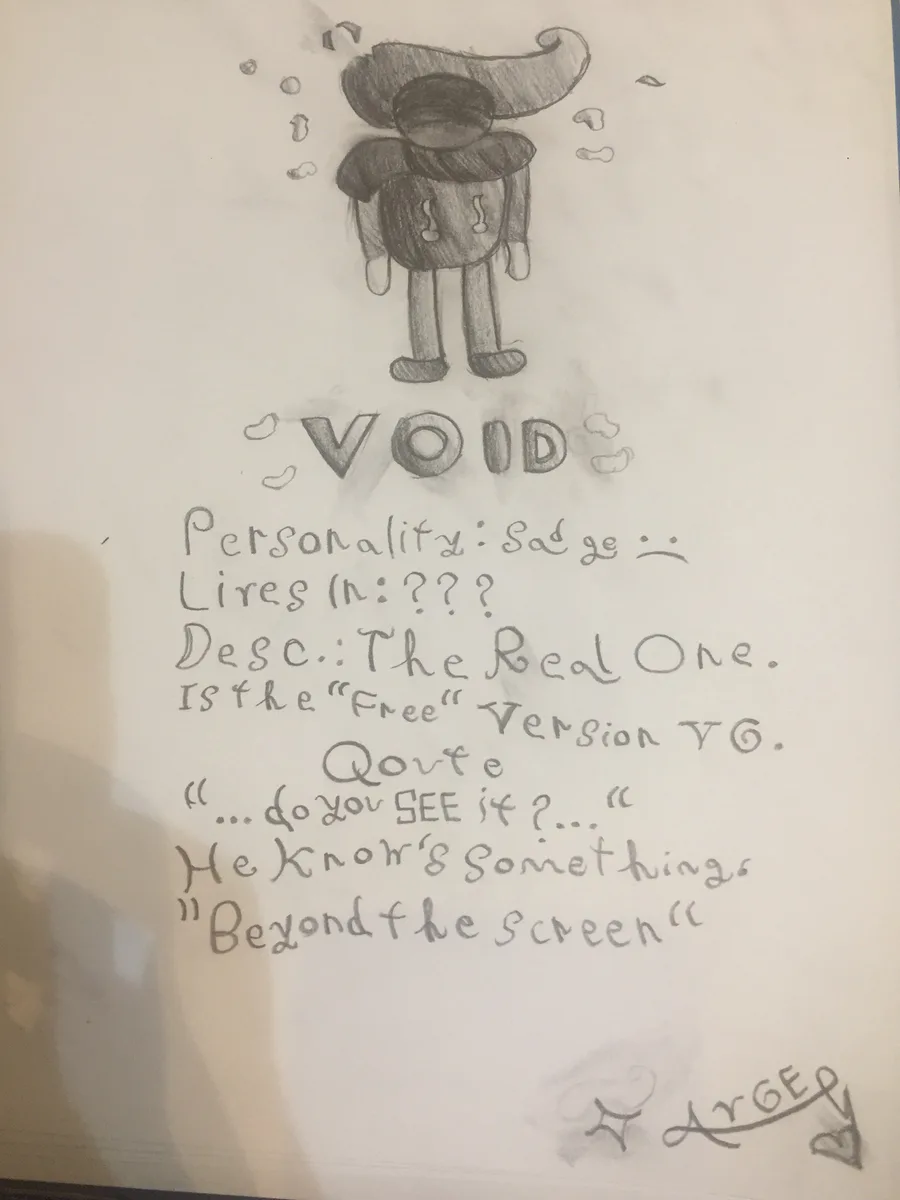 VOID
Personality: Sadge :(
Lives In: ???
Desc.: The Real One.
Is the "Free" Version VG.
Qoute
"... do you SEE it?..."
He Know's something.
"Beyond the screen"